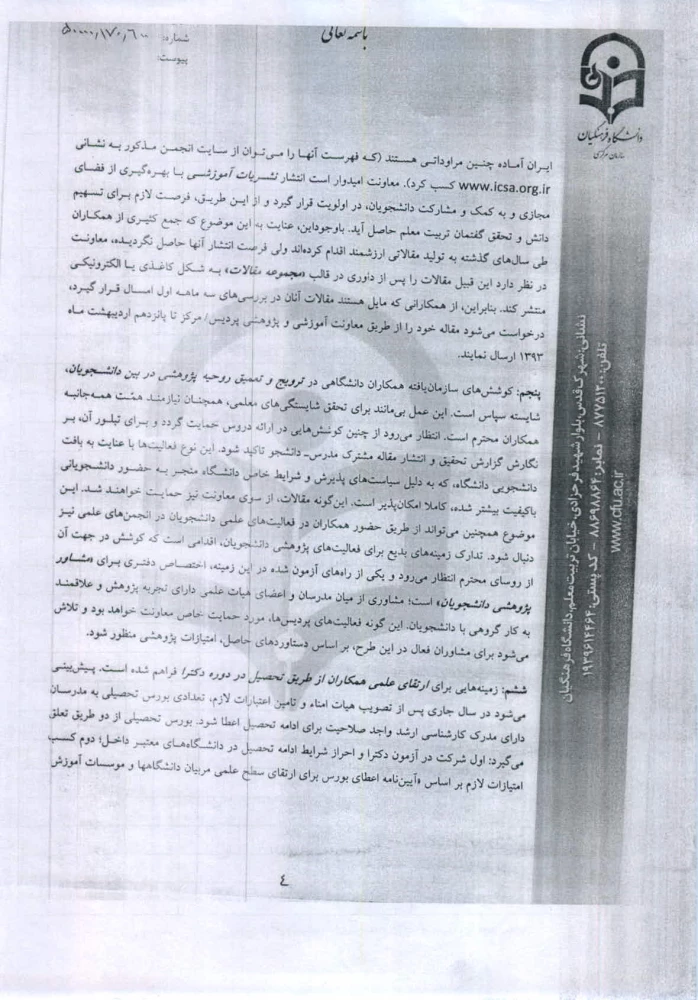 باسمه تعالی
شماره: ۵۰۰۰۰/۱۷۰/۶۰۰
پیوست:
دانشگاه فرهنگیان
سازمان مرکزی
ایران آماده چنین مراوداتی هستند (که فهرست آنها را می‌توان از سایت انجمن مذکور به نشانی
www.icsa.org.ir کسب کرد). معاونت امیدوار است انتشار نشریات آموزشی با بهره‌گیری از فضای
مجازی و به کمک و مشارکت دانشجویان، در اولویت قرار گیرد و از این طریق، فرصت لازم برای تسهیم
دانش و تحقق گفتمان تربیت معلم حاصل آید. باوجوداین، عنایت به این موضوع که جمع کثیری از همکاران
طی سال‌های گذشته به تولید مقالاتی ارزشمند اقدام کرده‌اند ولی فرصت انتشار آنها حاصل نگردیده، معاونت
در نظر دارد این قبیل مقالات را پس از داوری در قالب «مجموعه مقالات» به شکل کاغذی یا الکترونیکی
منتشر کند. بنابراین، از همکارانی که مایل هستند مقالات آنان در بررسی‌های سه ماهه اول امسال قرار گیرد،
درخواست می‌شود مقاله خود را از طریق معاونت آموزشی و پژوهشی پردیس/مرکز تا پانزدهم اردیبهشت ماه
۱۳۹۳ ارسال نمایند.
پنجم: کوشش‌های سازمان‌یافته همکاران دانشگاهی در ترویج و تعمیق روحیه پژوهشی در بین دانشجویان،
شایسته سپاس است. این عمل بی‌مانند برای تحقق شایستگی‌های معلمی، همچنان نیازمند همت همه‌جانبه
همکاران محترم است. انتظار می‌رود از چنین کوشش‌هایی در ارائه دروس حمایت گردد و برای تبلور آن، بر
نگارش گزارش تحقیق و انتشار مقاله مشترک مدرس-دانشجو تاکید شود. این نوع فعالیت‌ها با عنایت به بافت
دانشجویی دانشگاه، که به دلیل سیاست‌های پذیرش و شرایط خاص دانشگاه منجر به حضور دانشجویانی
باکیفیت بیشتر شده، کاملا امکان‌پذیر است. این‌گونه مقالات، از سوی معاونت نیز حمایت خواهند شد. این
موضوع همچنین می‌تواند از طریق حضور همکاران در فعالیت‌های علمی دانشجویان در انجمن‌های علمی نیز
دنبال شود. تدارک زمینه‌های بدیع برای فعالیت‌های پژوهشی دانشجویان، اقدامی است که کوشش در جهت آن
از روسای محترم انتظار می‌رود و یکی از راه‌های آزمون شده در این زمینه، اختصاص دفتری برای «مشاور
پژوهشی دانشجویان» است؛ مشاوری از میان مدرسان و اعضای هیات علمی دارای تجربه پژوهش و علاقمند
به کار گروهی با دانشجویان. این گونه فعالیت‌های پردیس‌ها، مورد حمایت خاص معاونت خواهد بود و تلاش
می‌شود برای مشاوران فعال در این طرح، بر اساس دستاوردهای حاصل، امتیازات پژوهشی منظور شود.
ششم: زمینه‌هایی برای ارتقای علمی همکاران از طریق تحصیل در دوره دکترا فراهم شده است. پیش‌بینی
می‌شود در سال جاری پس از تصویب هیات امناء و تامین اعتبارات لازم، تعدادی بورس تحصیلی به مدرسان
دارای مدرک کارشناسی ارشد واجد صلاحیت برای ادامه تحصیل اعطا شود. بورس تحصیلی از دو طریق تعلق
می‌گیرد: اول شرکت در آزمون دکترا و احراز شرایط ادامه تحصیل در دانشگاه‌های معتبر داخل؛ دوم کسب
امتیازات لازم بر اساس «آیین‌نامه اعطای بورس برای ارتقای سطح علمی مربیان دانشگاهها و موسسات آموزش
نشانی: شهرک قدس، بلوار شهید فرحزادی، خیابان تربیت معلم، دانشگاه فرهنگیان
تلفن: ۸۷۷۵۱۲۰۰ – نمابر: ۸۸۶۹۸۸۶۴ – کد پستی: ۱۹۳۹۶۱۴۴۶۴
www.cfu.ac.ir
٤